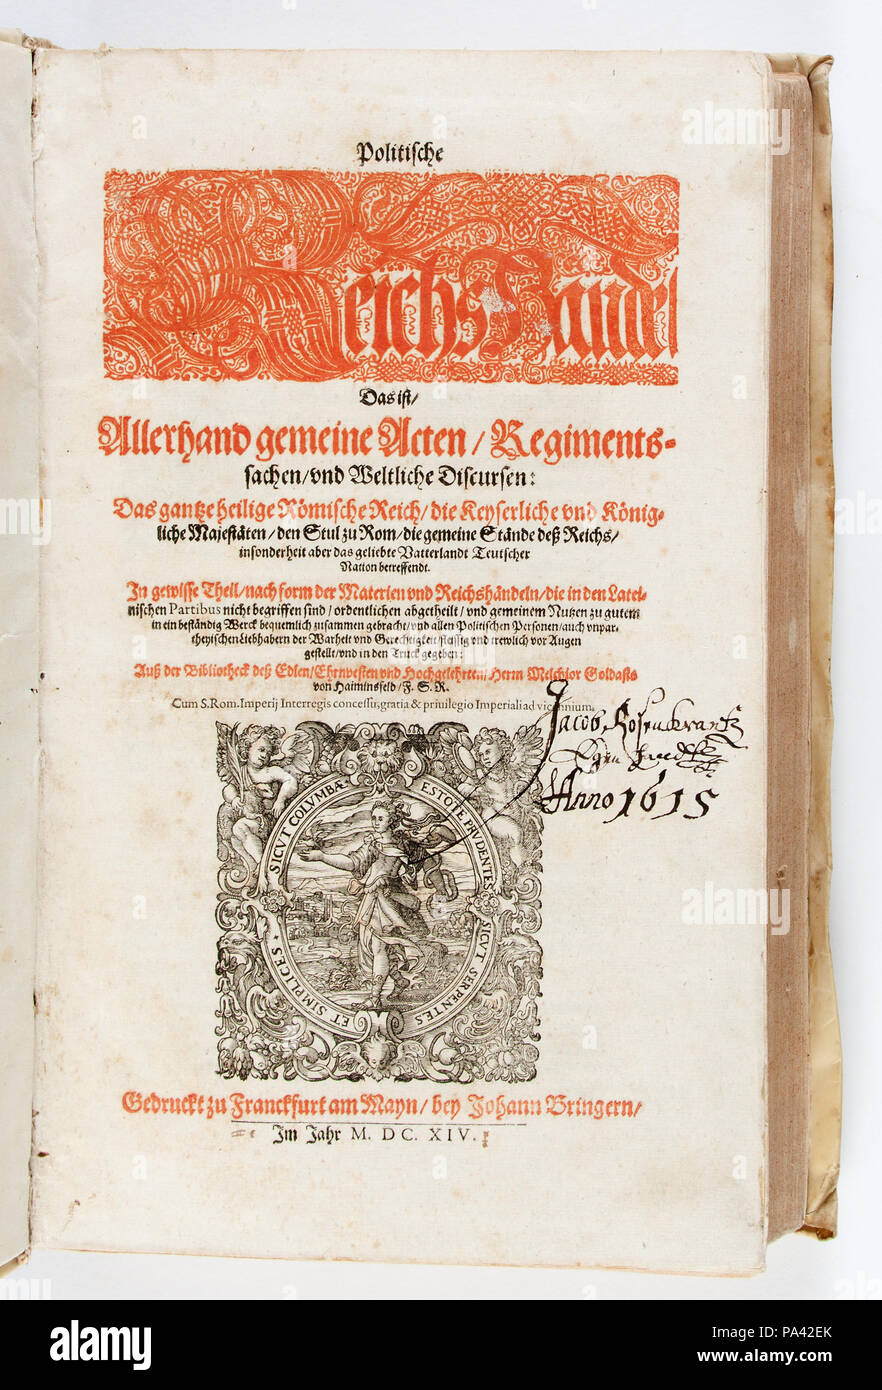 Politische
ReichsHändel
Das ist/
Allerhand gemeine Acten/ Regiments-
sachen/ vnd Weltliche Discursen:
Das gantze heilige Römische Reich/ die Keyserliche vnd König-
liche Majestäten/ den Stul zu Rom/ die gemeine Stände deß Reichs/
insonderheit aber das geliebte Vatterlandt Teutscher
Nation betreffendt.
In gewisse Theil/ nach form der Materien vnd Reichshändeln/ die in den Latei-
nischen Partibus nicht begriffen sind/ ordentlichen abgetheilt/ vnd gemeinem Nutzen zu gutem
in ein beständig Werck bequemlich zusammen gebracht/ vnd allen Politischen Personen/ auch vnpar-
theyischen Liebhabern der Warheit vnd Gerechtigkeit/ fleissig vnd trewlich vor Augen
gestellt/ vnd in den Truck gegeben:
Auß der Bibliotheck deß Edlen/ Ehrnvesten vnd Hochgelehrten/ Herrn Melchior Goldasts
von Haiminsfeld/ F. S. R.
Cum S. Rom. Imperij Interregis concessis, gratia & priuilegio Imperiali ad vicennium.
Jacob Rosenkrantz
Egen
Anno 1615
SICVT COLVMBÆ ESTOTE PRVDENTES SICVT SERPENTES ET SIMPLICES
Gedruckt zu Franckfurt am Mayn/ bey Johann Bringern/
Im Jahr M. DC. XIV.
alamy
a
PA42EK
www.alamy.com